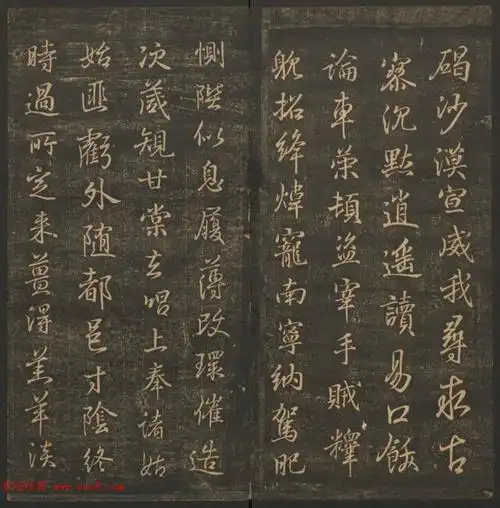 碣沙漠宣威我尋求古
寮沉默逍遙讀易口飯
論車策頓盜宰手賊釋
躭招絳煒寵南寧納駕肥
惻陛似息履薄改環催造
次箴規甘棠去唱上奉諸姑
始匪虧外隨都邑寸陰終
時過所定來薑淂羔羊淡